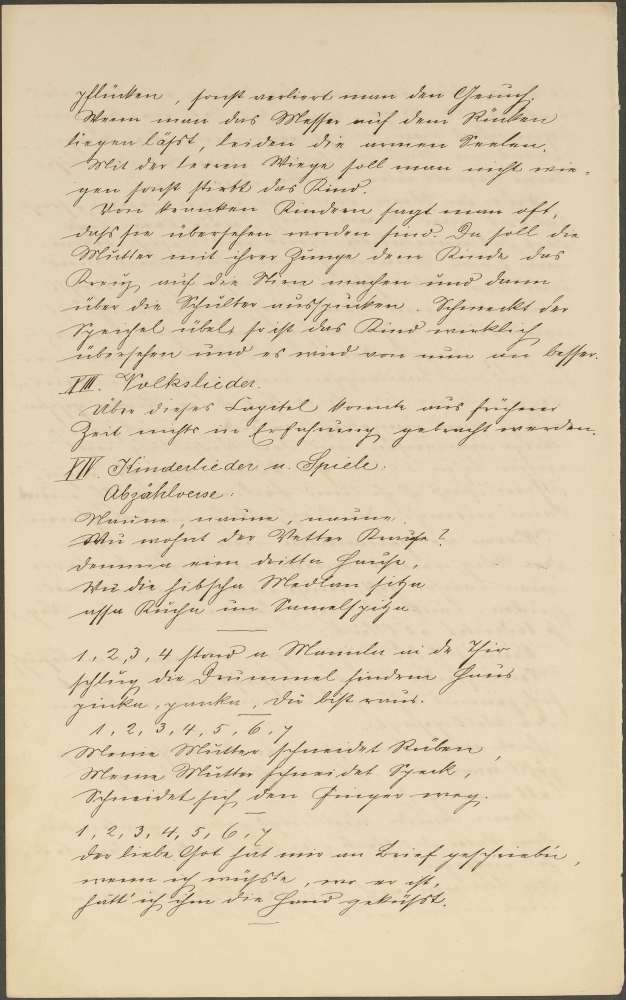 pflücken, sonst verliert man den Geruch.
Wenn man das Messer auf dem Rücken
liegen läßt, leiden die armen Seelen.
Mit der leeren Wiege soll man nicht wie-
gen sonst stirbt das Kind.
Von kranken Kindern sagt man oft,
daß sie übersehen worden sind. Da soll die
Mutter mit ihrer Zunge dem Kinde das
Kreuz auf die Stirn machen und dann
über die Schulter ausspucken. Schmeckt der
Speichel übel, so ist das Kind wirklich
übersehen und es wird von nun an besser.
XIII. Volkslieder.
Über dieses Capitel konnte aus früherer
Zeit nichts in Erfahrung gebracht werden.
XIV. Kinderlieder u. Spiele.
Abzählverse:
Naune, naune, naune
Wu wohnt der Vetter Krause?
Demma eim dritta Hause,
Wu die hibscha Medlan sitza
assa Kucha im Samelspitza
1, 2, 3, 4 stand a Mannla ai de Thir
schlug die Drummel hindrem Haus
pinka, panka, Du bist raus.
1, 2, 3, 4, 5, 6, 7
Meine Mutter schneidet Rüben,
Meine Mutter schneidet Speck,
Schneidet sich den Finger weg.
1, 2, 3, 4, 5, 6, 7
der liebe Got hat mir an Brief geschriebn,
wenn ich wüßte, wo er ist,
hätt' ich ihm die Hand geküßt.